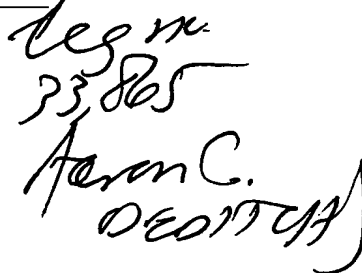 Reg no.
33,865
Aaron C.
DEDITCH